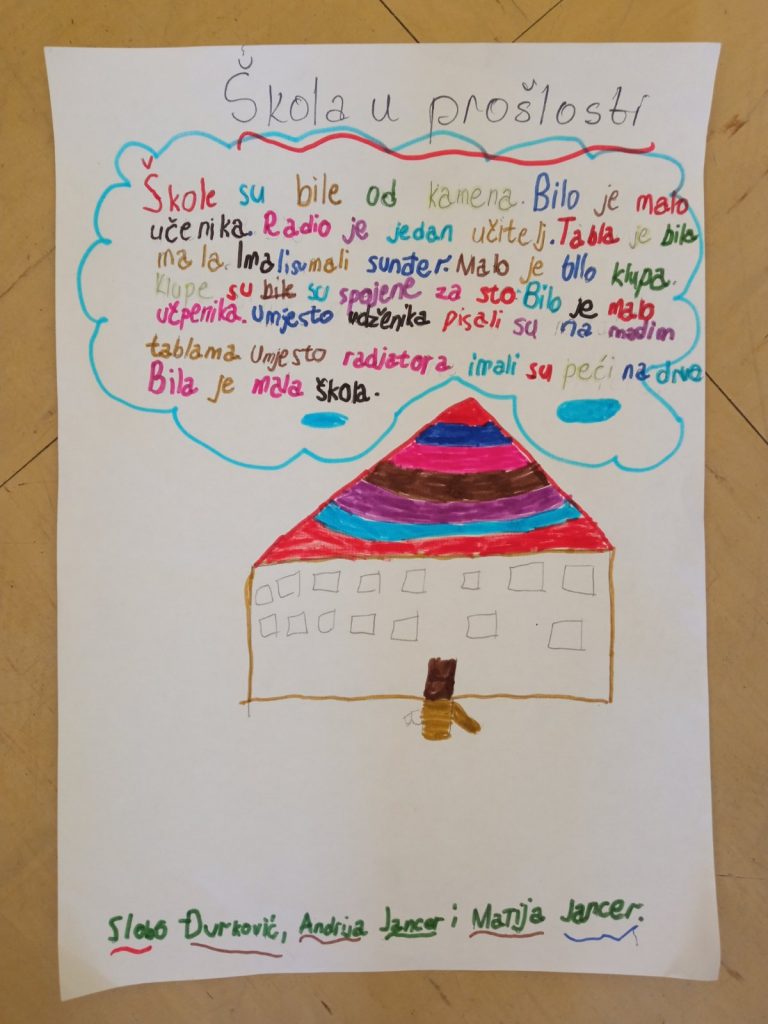 Škola u prošlosti
Škole su bile od kamena. Bilo je malo
učenika. Radio je jedan učitelj. Tabla je bila
mala. Imali su mali sunđer. Malo je bilo klupa.
Klupe su bile su spojene za sto. Bilo je malo
učpenika. Umjesto udženika pisali su na madim
tablama Umjesto radjatora imali su peći na drva
Bila je mala škola.
Slobo Đurković, Andrija Jancer i Matija Jancer.